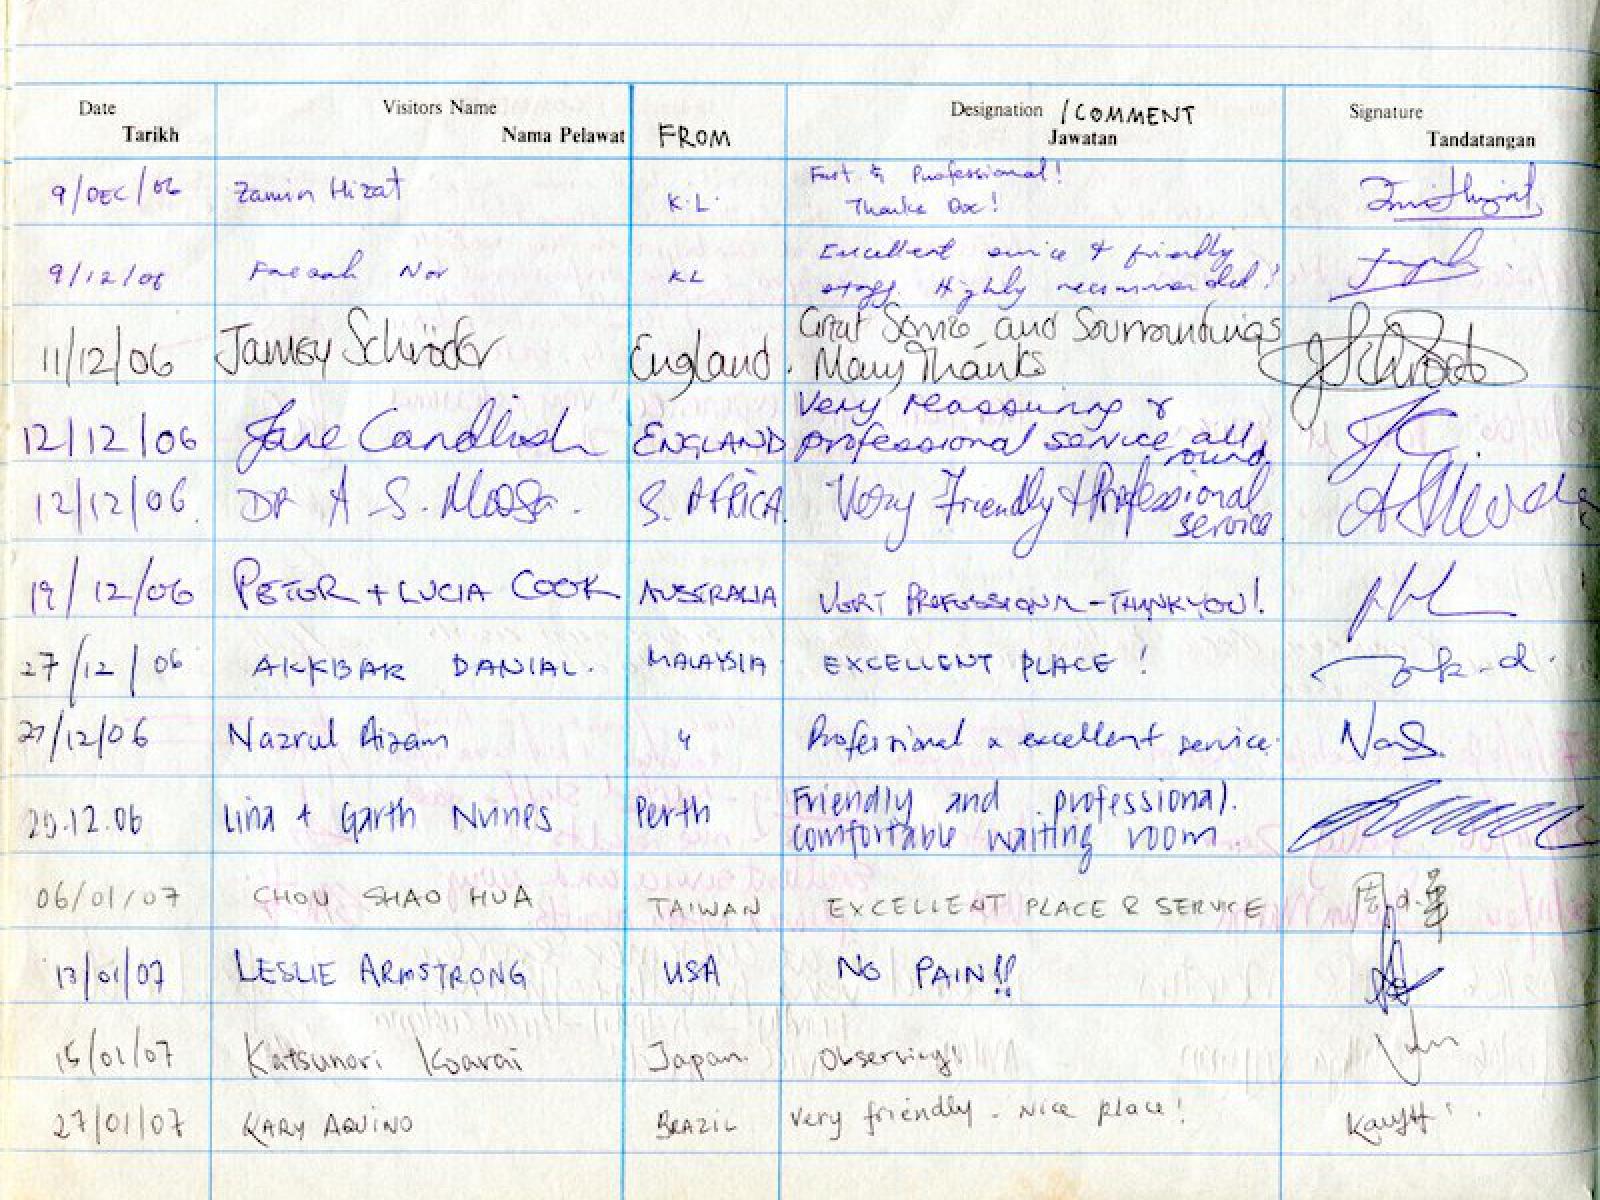 Date Visitors Name Designation /COMMENT Signature
Tarikh Nama Pelawat FROM Jawatan Tandatangan
9/DEC/06 Zamin Hizat K.L. Fast & Professional!
Thanks Doc!
9/12/06 Nor KL Excellent service & friendly
staff. Highly recommended!
11/12/06 Jamsy Schröder England. Great Service and Sourroundings
Many Thanks
12/12/06 Jane Candlish ENGLAND Very reassuring &
professional service all
round
12/12/06. DR A S. Moosa. S. AFRICA. Very Friendly & Professional
service
19/12/06 PETER + LUCIA COOK AUSTRALIA VERY PROFESSIONAL - THANKYOU!
27/12/06 AKKBAR DANIAL. MALAYSIA EXCELLENT PLACE !
27/12/06 Nazrul Aizam " Professional & excellent service.
29.12.06 Lina + Garth Nunes Perth Friendly and professional.
comfortable waiting room.
06/01/07 CHOU SHAO HUA TAIWAN EXCELLENT PLACE & SERVICE
13/01/07 LESLIE ARMSTRONG USA NO PAIN!!
15/01/07 Katsunori Japan Observing!
27/01/07 KARY AQUINO BRAZIL very friendly - nice place!